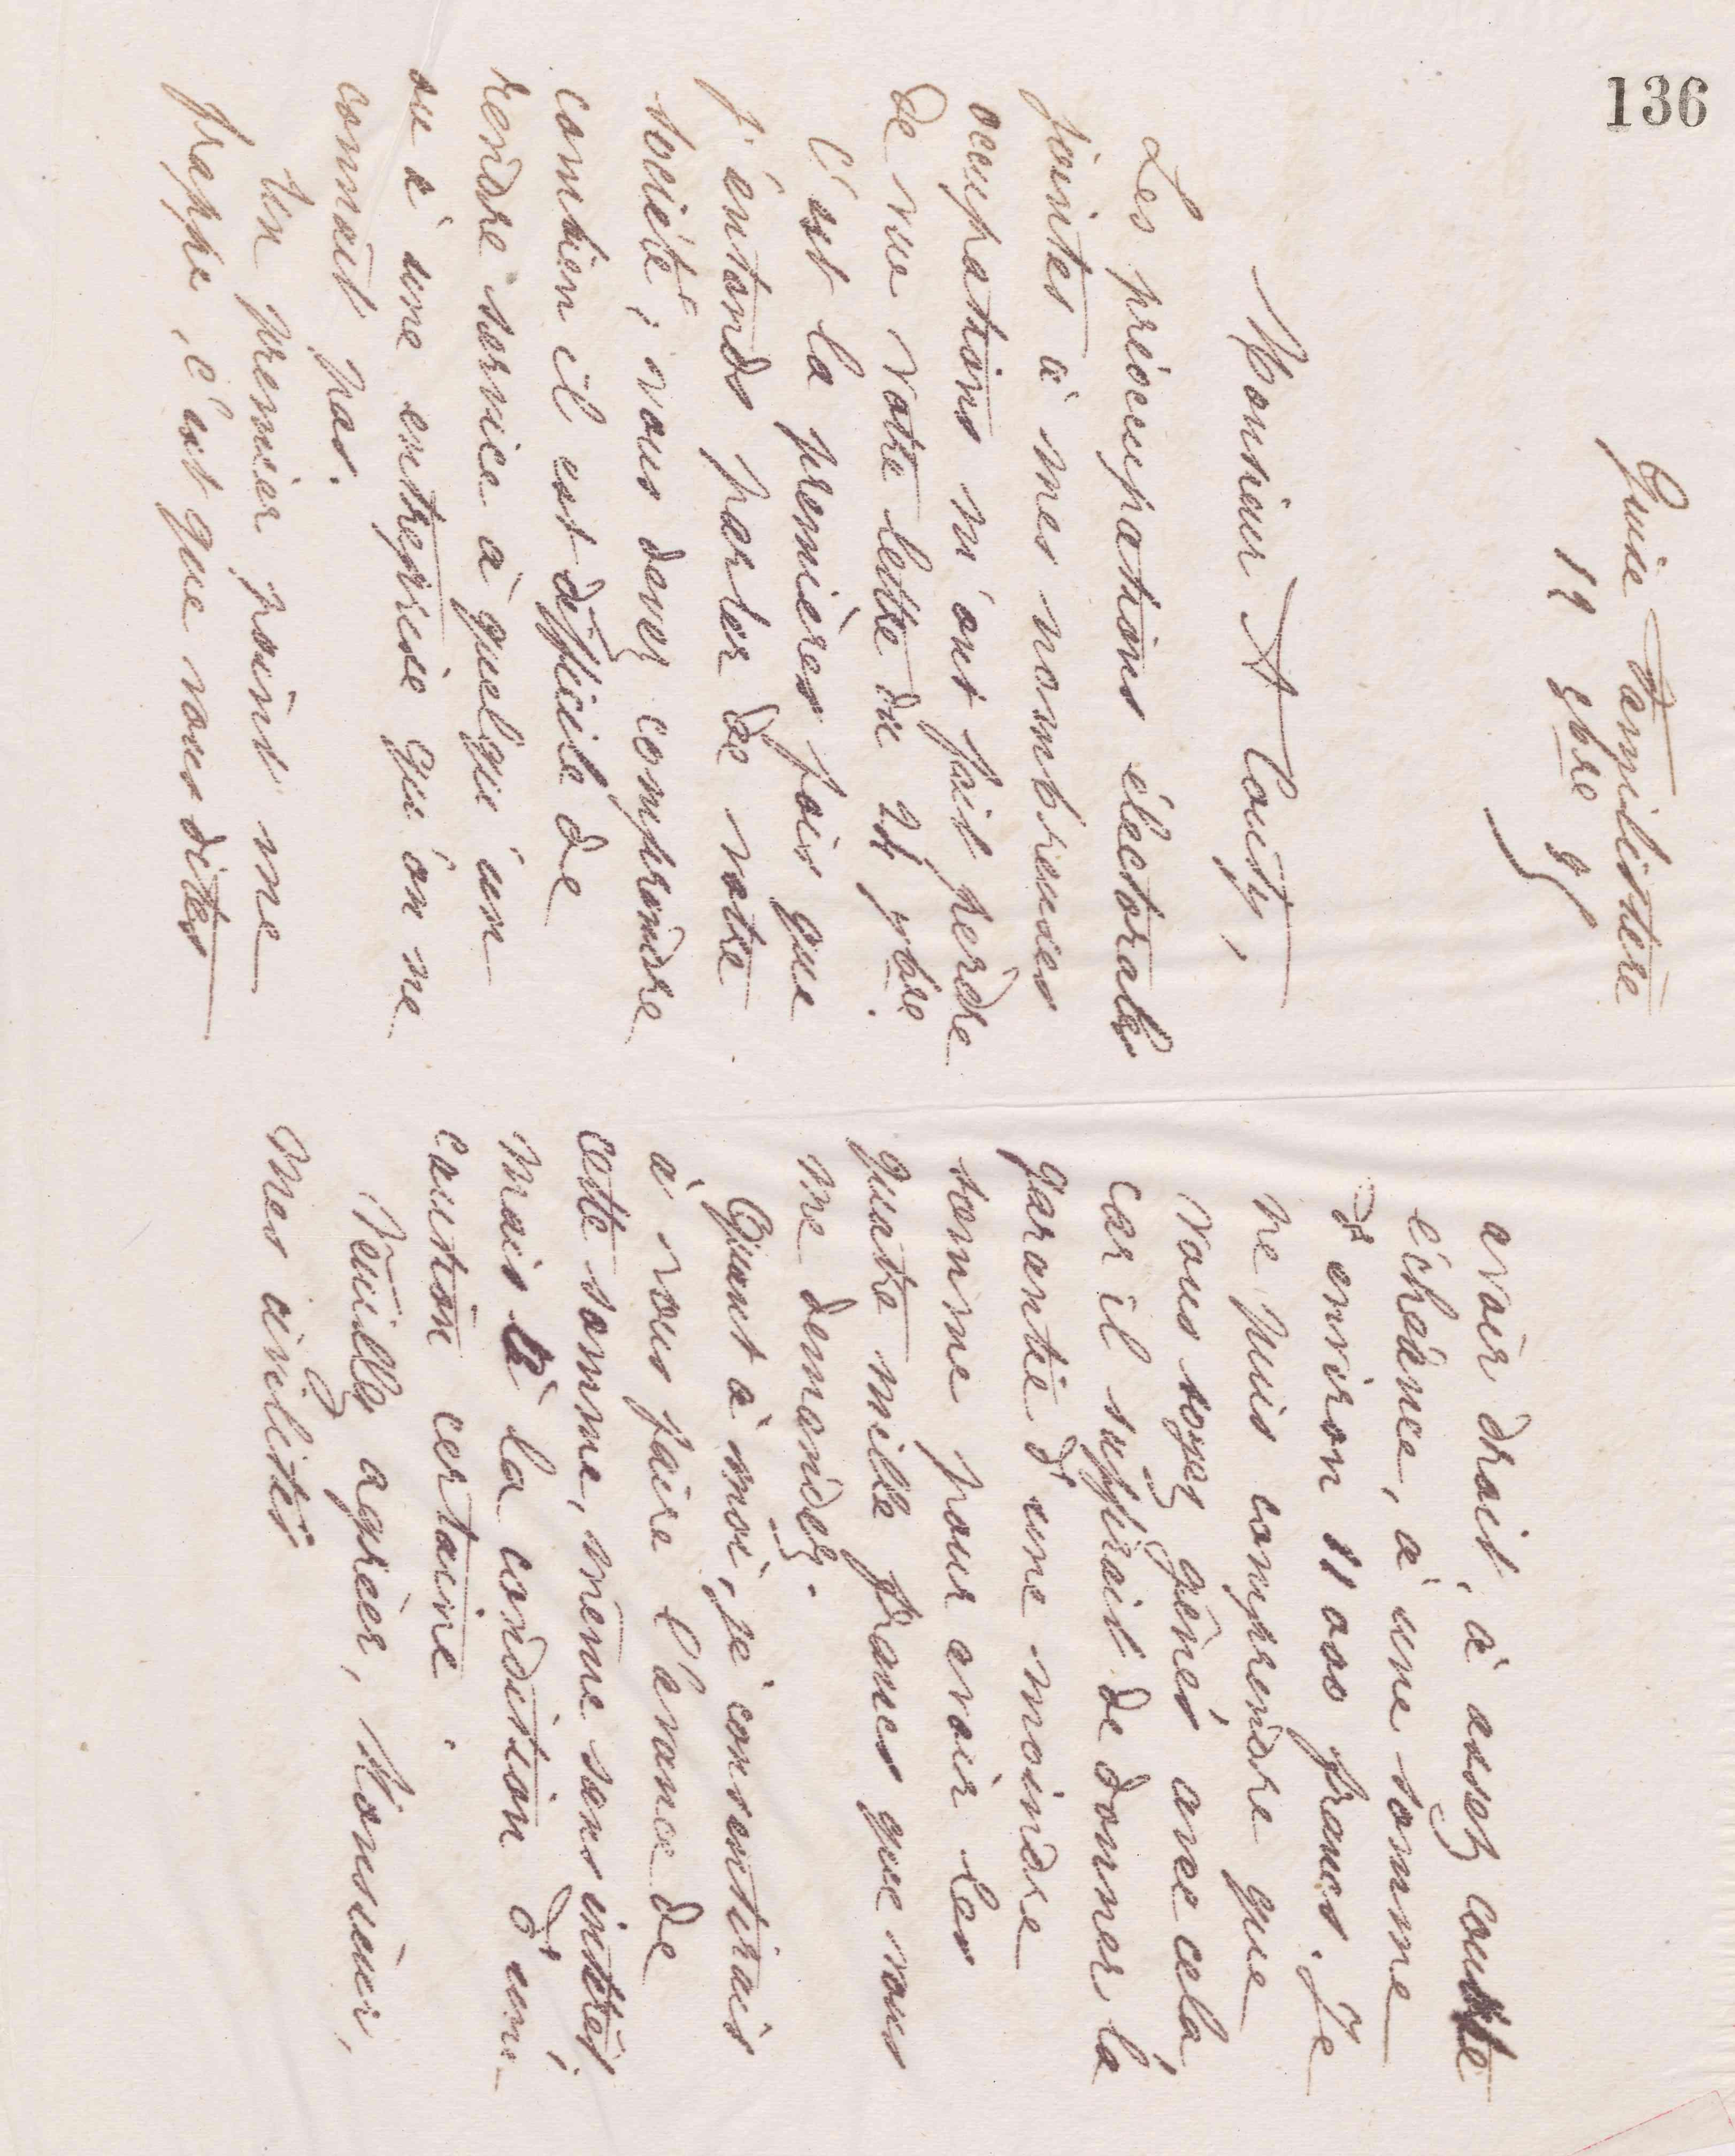 136
Guise Familistère
19 8bre 85
Monsieur A Couty,
Les préoccupations électorales
jointes à mes nombreuses
occupations m'ont fait perdre
de vue votre lettre du 24 7bre.
C'est la premières fois que
j'entends parler de votre
société; vous devez comprendre
combien il est difficile de
rendre service à quelqu'un
ou à une entreprise qu'on ne
connaît pas.
Un premier point me
frappe, c'est que vous dites
avoir droit, à assez courte
échéance, à une somme
d'environ 11 000 francs. Je
ne puis comprendre que
vous soyez gênés avec cela,
car il suffirait de donner la
garantie d'une moindre
somme pour avoir les
quatre mille francs que vous
me demandez.
Quant à moi, je consentirais
à vous faire l'avance de
cette somme, même sans intérêt,
mais à la condition d'une
caution certaine.
Veuillez agréer, Monsieur,
mes civilités